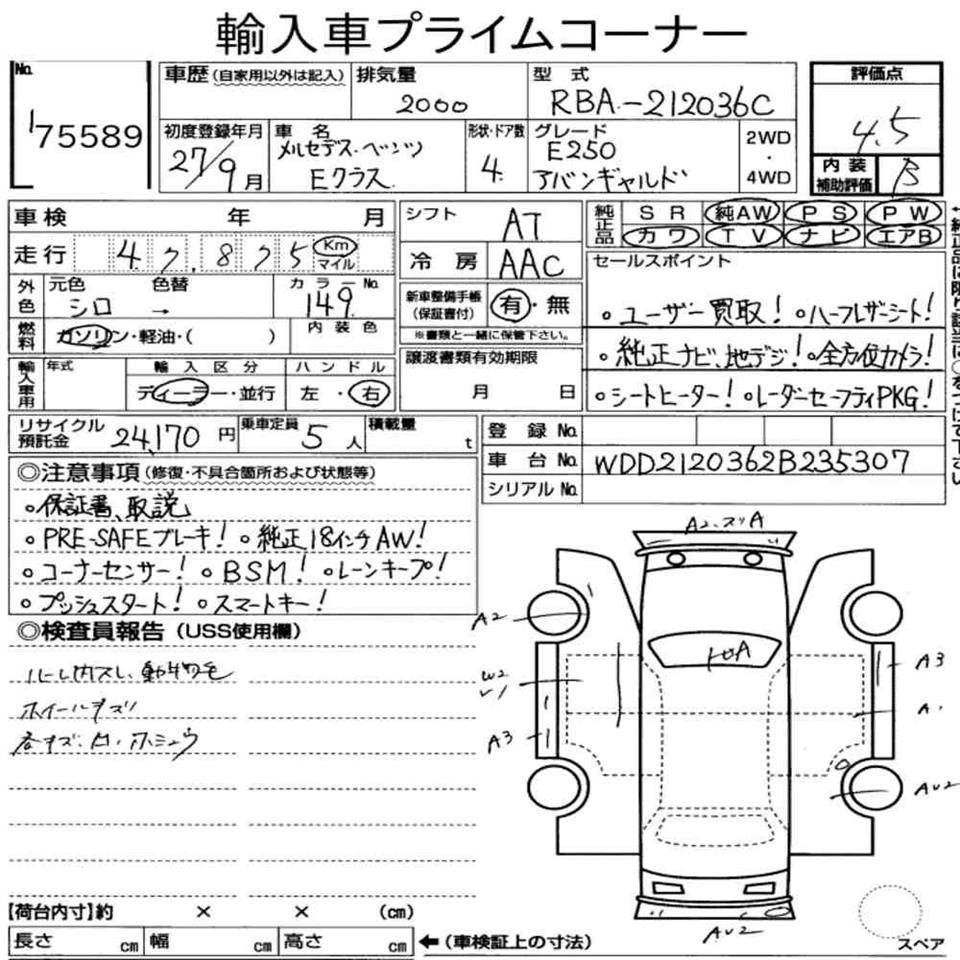 輸入車プライムコーナー
No. 175589
車歴(自家用以外は記入)
排気量 2000
型式 RBA-212036C
評価点 4.5
内装補助評価 B
初度登録年月 27/9月
車名 メルセデス・ベンツ Eクラス
形状・ドア数 4
グレード E250 アバンギャルド
2WD・4WD
車検 年 月
走行 47,875 Km マイル
外色 元色 シロ 色替 → カラーNo. 149
燃料 ガソリン・軽油・( ) 内装色
輸入車用 年式 輸入区分 ディーラー・並行 ハンドル 左・右
シフト AT
冷房 AAC
新車整備手帳(保証書付) 有・無
※書類と一緒に保管下さい。
譲渡書類有効期限
月 日
純正品 SR 純AW PS PW
カワ TV ナビ エアB
セールスポイント
。ユーザー買取! 。ハーフレザーシート!
。純正ナビ、地デジ! 。全方位カメラ!
。シートヒーター! 。レーダーセーフティPKG!
←純正品に限り該当に○をつけて下さい
リサイクル預託金 24,170円 乗車定員 5人 積載量 t
登録No.
車台No. WDD2120362B235307
シリアルNo.
◎注意事項(修復・不具合箇所および状態等)
。保証書、取説
。PRE-SAFEブレーキ! 。純正18インチAW!
。コーナーセンサー! 。BSM! 。レーンキープ!
。プッシュスタート! 。スマートキー!
◎検査員報告(USS使用欄)
ルーム内スレ、動物毛
ホイールキズ
各キズ、凹・
A2
A2
A3
W2
A
A3
AU2
AU2
【荷台内寸】約 × × (cm)
長さ cm 幅 cm 高さ cm ←(車検証上の寸法)
スペア